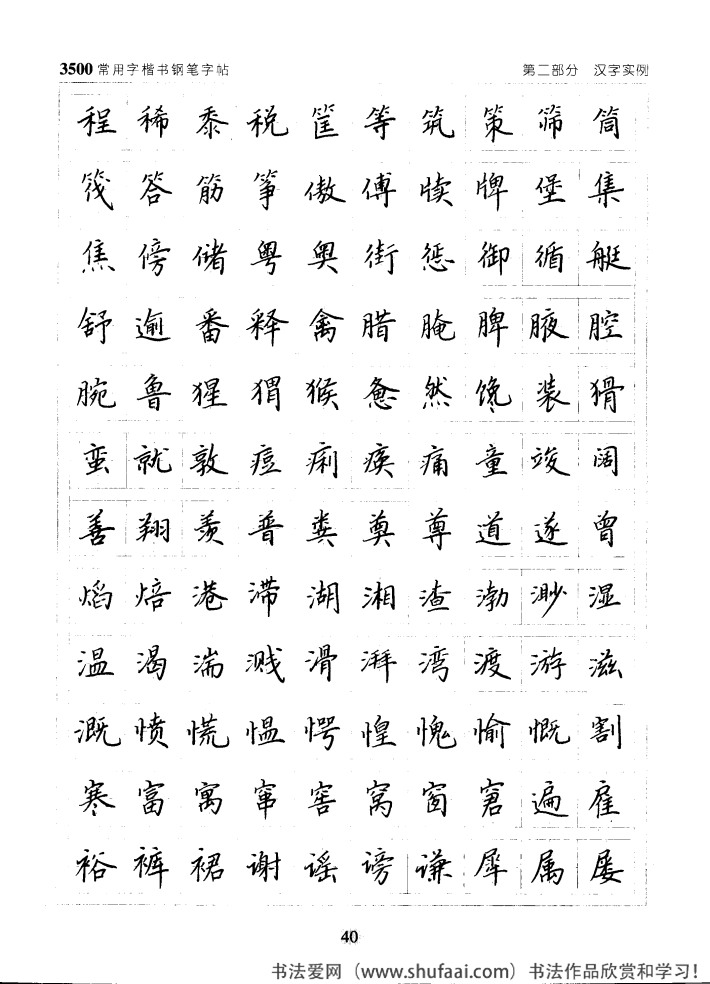 3500常用字楷书钢笔字帖 第二部分 汉字实例
程稀黍税筐等筑策筛筒
筏答筋筝傲傅牍牌堡集
焦傍储粤奥街惩御循艇
舒逾番释禽腊腌脾腋腔
腕鲁猩猬猴惫然馋装猾
蛮就敦痘痢痪痛童竣阔
善翔羡普粪奠尊道遂曾
焰焙港滞湖湘渣渤渺湿
温渴湍溅滑湃湾渡游滋
溉愤慌愠愕惶愧愉慨割
寒富寓窜窖窝窗窘遍雇
裕裤裙谢谣谤谦犀属屡
40
书法爱网（www.shufaai.com）书法作品欣赏和学习！